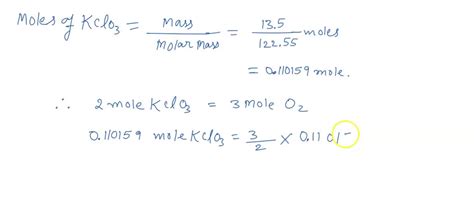 Moles of KClO₃ = Mass / Molar Mass = 13.5 / 122.55 moles
= 0.110159 mole.
∴ 2 mole KClO₃ = 3 mole O₂
0.110159 mole KClO₃ = 3/2 × 0.1101